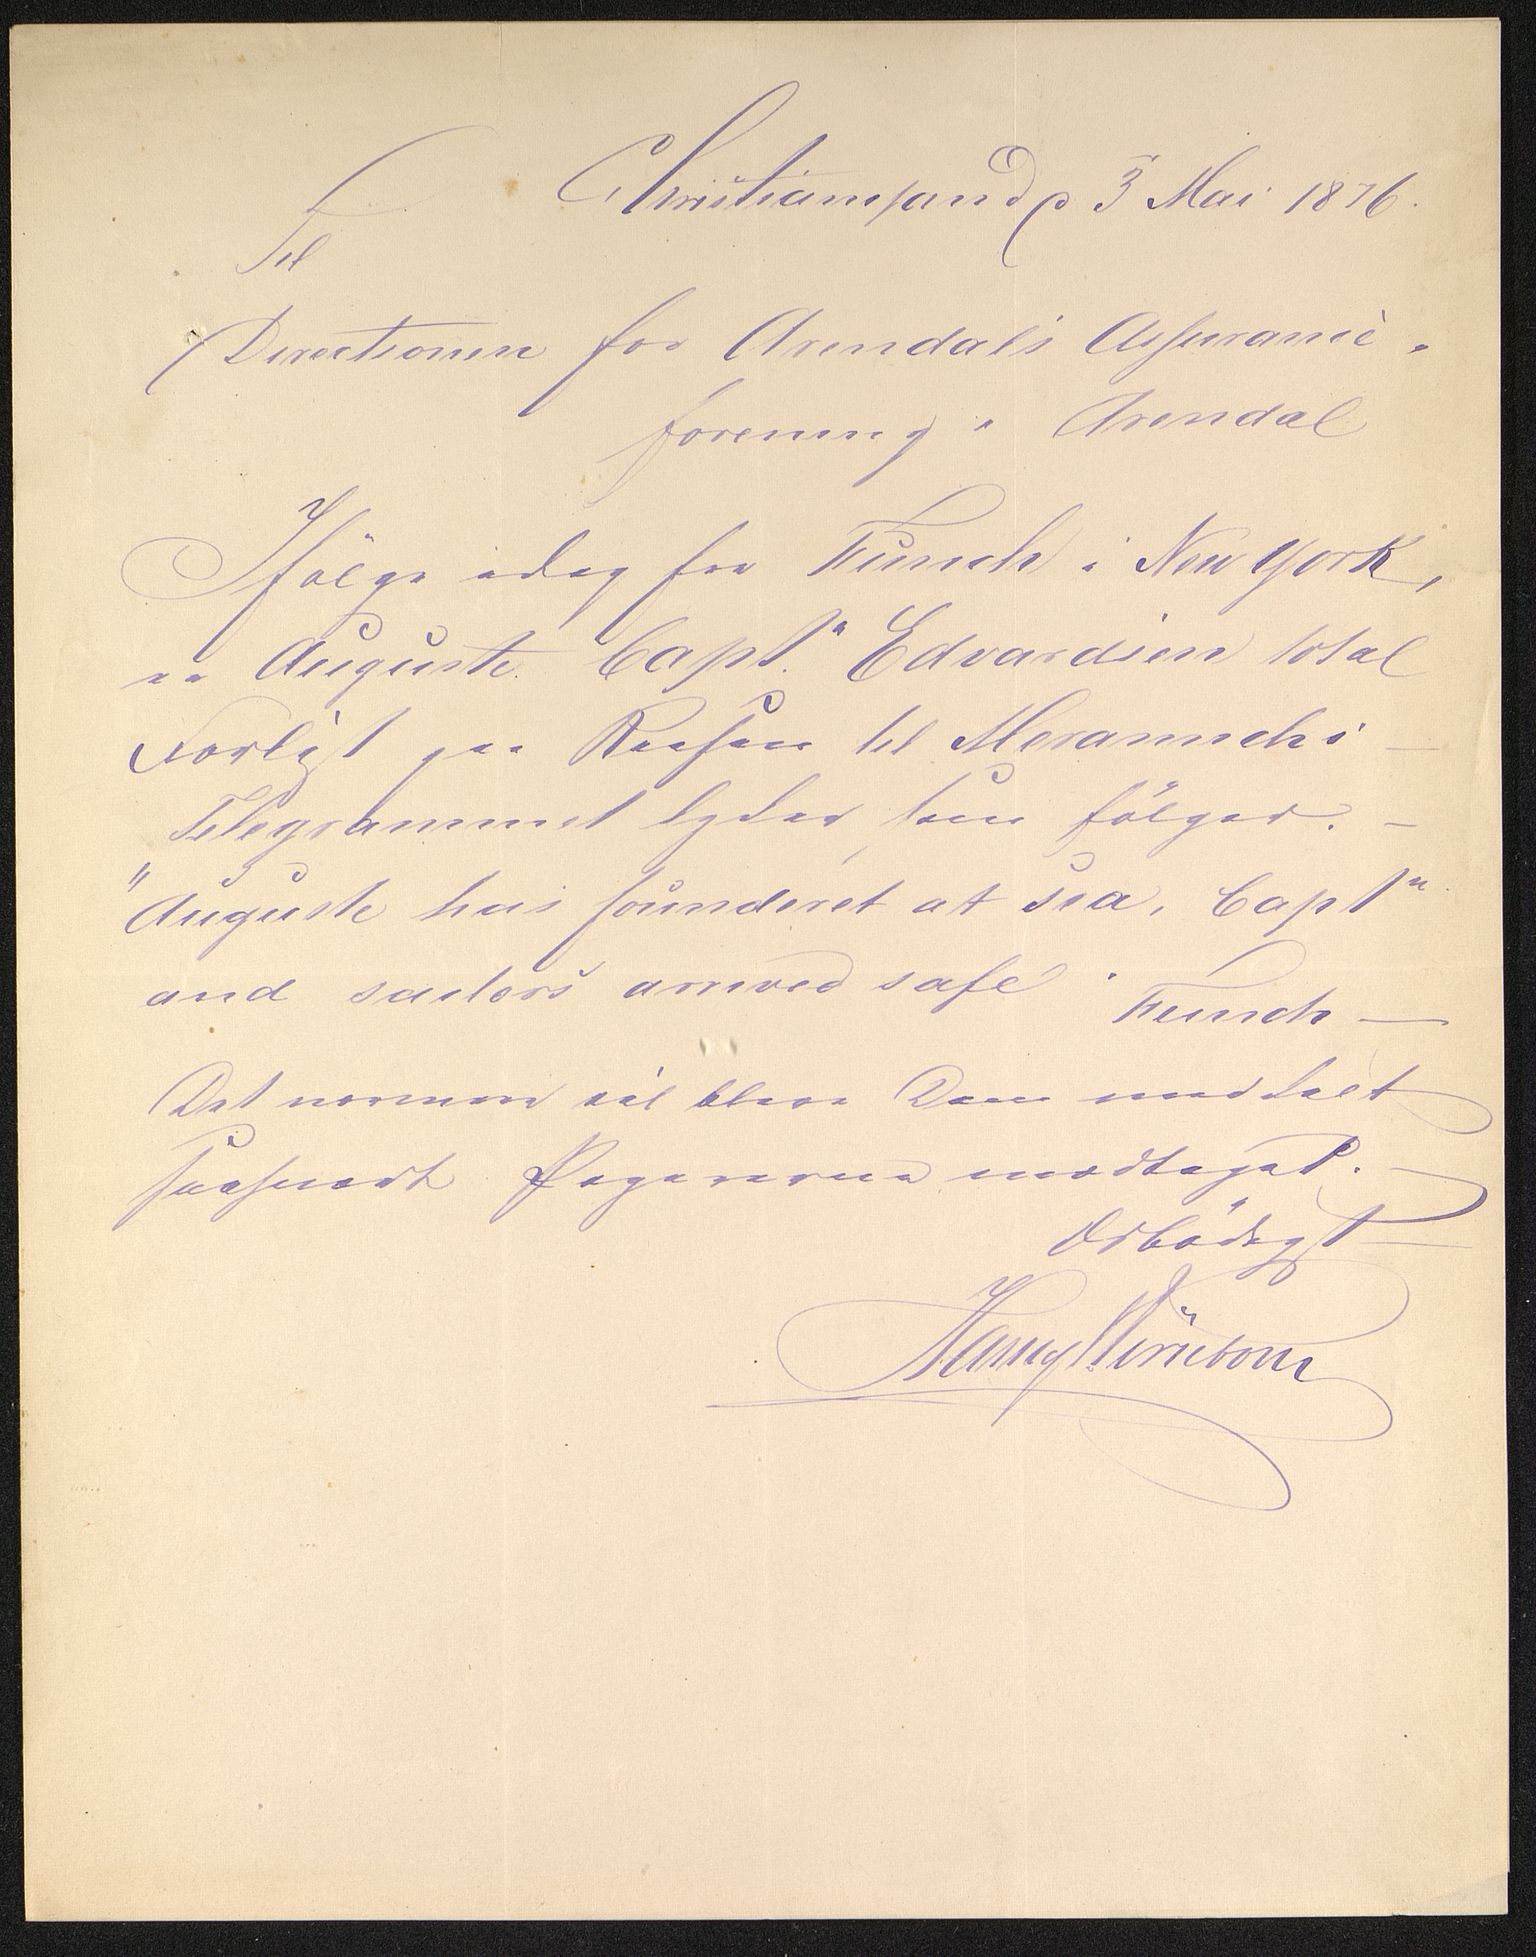 Christianssand d 3 Mai 1876.
Til
Directionen for Arendals Assurance-
forening i Arendal
Ifölge idag fra Funch i New York,
er Auguste Capt.n Edvardsen total
Forlist paa Reisen til Maramichi –
Telegrammet lyder som fölger. –
"Auguste has founderet at sea, Captn
and sailors arrived safe. Funch —
Det nærmere vil blive Dem meddelt
saasnart Papirerne modtaget. –
Ærbödigst